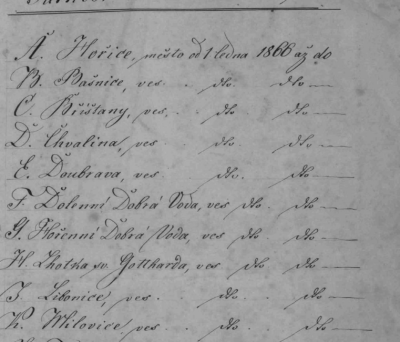 A. Hořice, město od 1 ledna 1866 až do
B. Bašnice, ves . . dto dto —
C. Bříšťany, ves, . dto dto —
D. Chvalina, ves . dto. dto —
E. Doubrava, ves . dto. dto —
F. Dolenní Dobrá Voda, ves dto. dto —
G. Hořenní Dobrá Voda, ves dto dto —
H. Lhotka sv. Gottharda, ves dto dto —
I. Libonice, ves . . dto. dto —
K. Milovice, ves . . dto . dto —